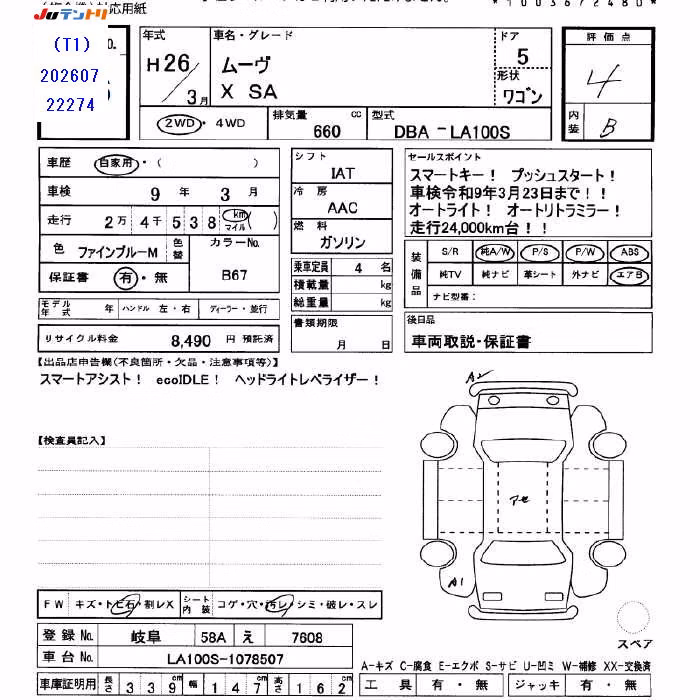 応用紙
JUテントリ
(T1)
202607
22274
年式 H26/3月
車名・グレード ムーヴ
X SA
ドア 5
形状 ワゴン
評価点 4
内装 B
2WD・4WD
排気量 660 cc
型式 DBA-LA100S
車歴 自家用・( )
車検 9年 3月
走行 2万4千538 km マイル( )
色 ファインブルーM 色替
カラーNo. B67
保証書 有・無
シフト IAT
冷房 AAC
燃料 ガソリン
乗車定員 4 名
積載量 kg
総重量 kg
書類期限 月 日
セールスポイント
スマートキー! プッシュスタート!
車検令和9年3月23日まで!!
オートライト! オートリトラミラー!
走行24,000km台!!
装備品 S/R 純A/W P/S P/W ABS
純TV 純ナビ 革シート 外ナビ エアB
ナビ型番:
モデル年式 年 ハンドル 左・右 ディーラー・並行
リサイクル料金 8,490 円 預託済
後日品
車両取説・保証書
【出品店申告欄(不良箇所・欠品・注意事項等)】
スマートアシスト! ecoIDLE! ヘッドライトレベライザー!
【検査員記入】
アセ
A1
FW キズ・トビ石・割レX シート内装 コゲ・穴・汚レ・シミ・破レ・スレ
登録No. 岐阜 58A え 7608
車台No. LA100S-1078507
車庫証明用 長さ 339cm 幅 147cm 高さ 162cm
スペア
A-キズ C-腐食 E-エクボ S-サビ U-凹ミ W-補修 XX-交換済
工具 有・無 ジャッキ 有・無